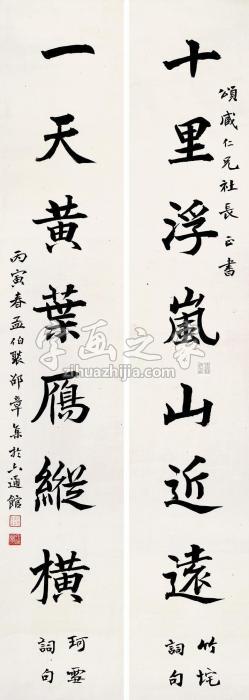 頌威仁兄社長正書
十里浮嵐山近遠
竹垞詞句
一天黃葉鴈縱橫
珂雪詞句
丙寅春孟伯褧邵章集於六通館
字画之家
zihuazhijia.com